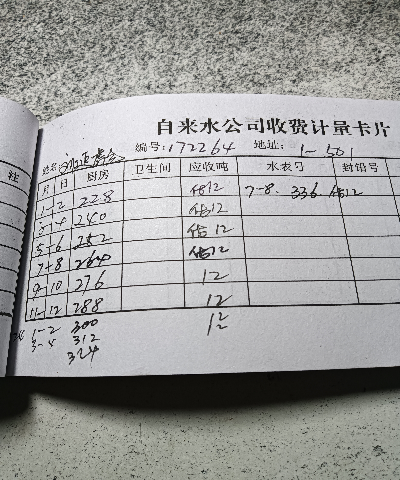 自来水公司收费计量卡片
编号:172264 地址: 1-501
姓名
月 日 厨房 卫生间 应收吨 水表号 封铅号
1-2 228 估12 7-8. 336. 估12
3-4 240 估12
5-6 252 估12
7-8 264 估12
9-10 276 12
11-12 288 12
1-2 300 12
3-4 312
324
注